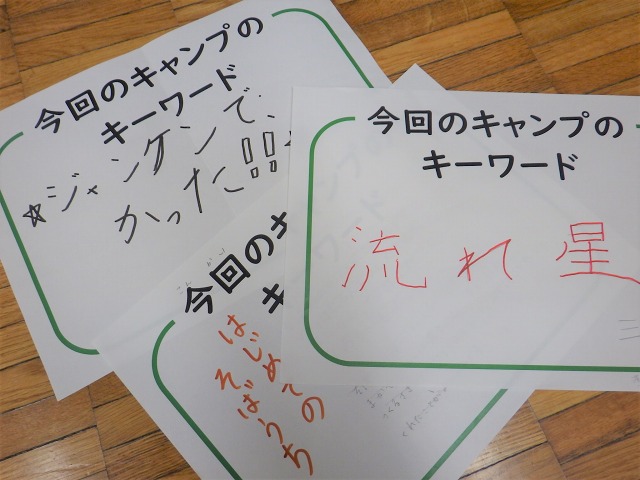 今回のキャンプの
キーワード
☆ジャンケンで、
かった!!
今回のキャンプの
キーワード
流れ星
今回のキャンプの
キ
はじめての
そばうち